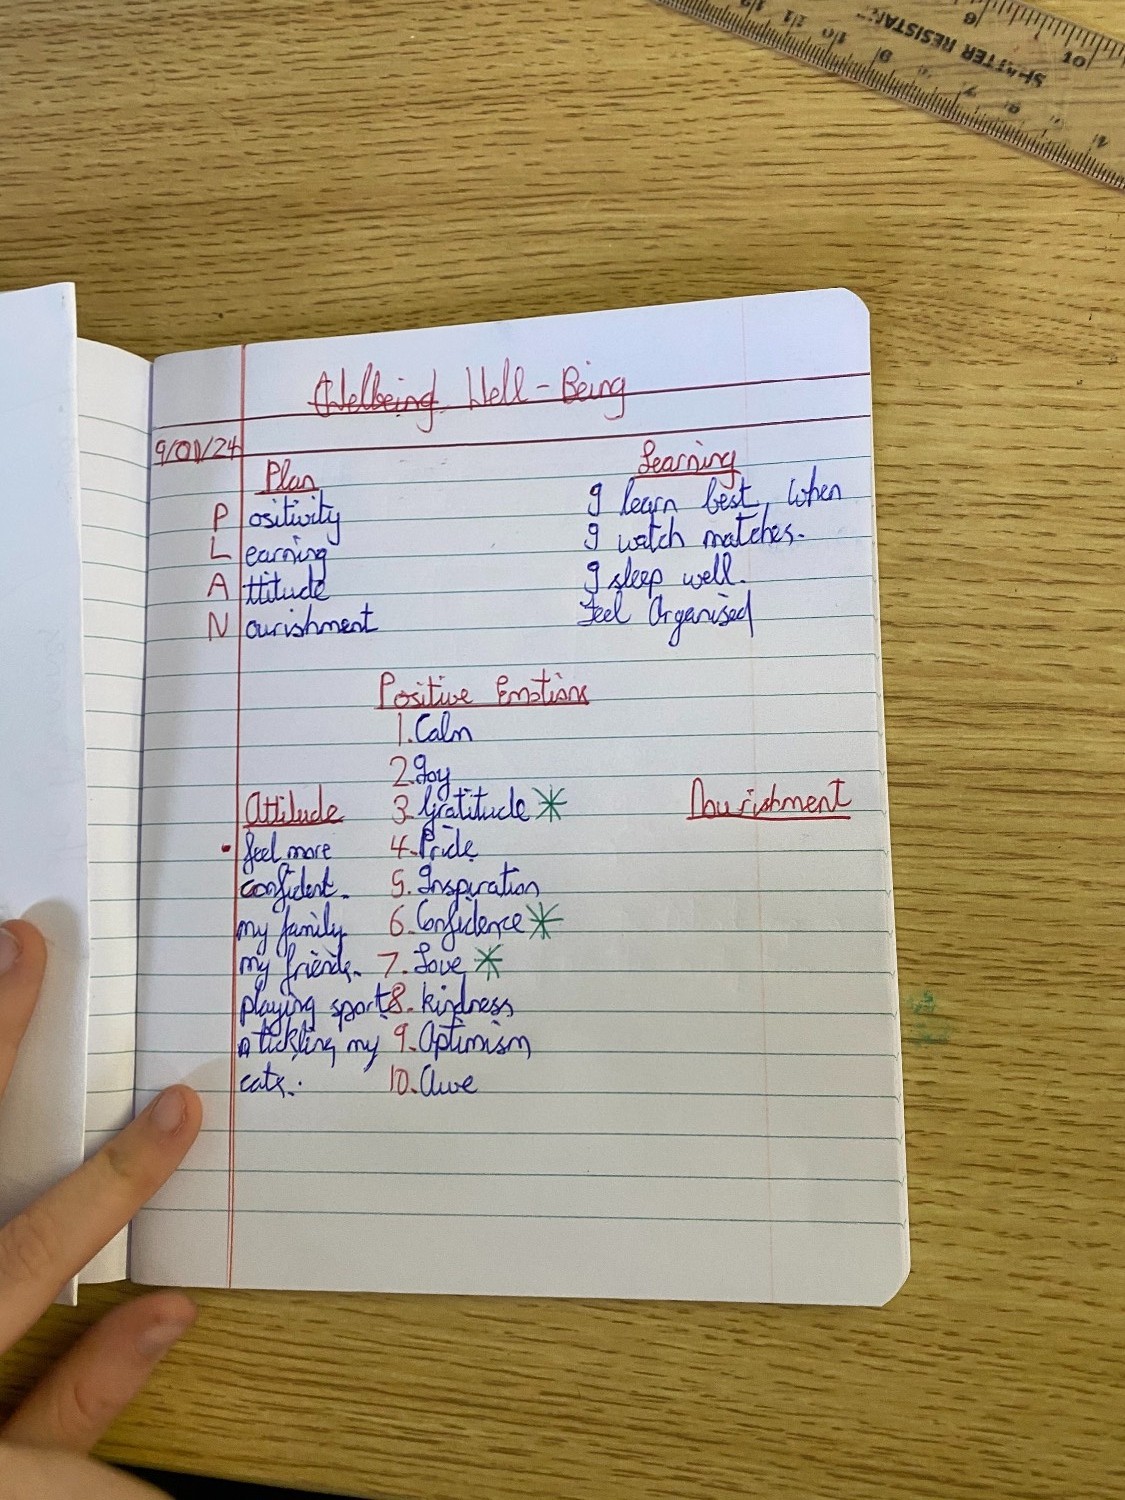 Wellbeing Well-Being
9/01/24
Plan
Positivity
Learning
Attitude
Nourishment
Learning
I learn best, when
I watch matches.
I sleep well.
Feel Organised
Positive Emotions
1. Calm
2. Joy
3. Gratitude
4. Pride
5. Inspiration
6. Confidence
7. Love
8. kindness
9. Optimism
10. Awe
Attitude
• feel more
confident.
my family.
my friends.
playing sport
tickling my
cats.
Nourishment
SHATTER RESISTANT